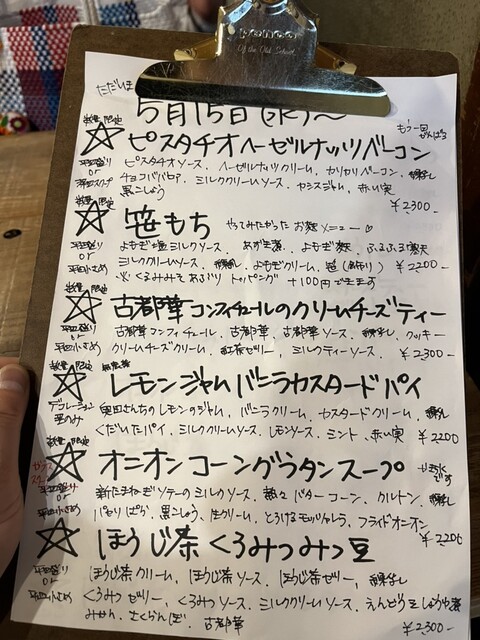 ただいま
5月15日(水)〜
もう一回がんばる
数量限定
ピスタチオヘーゼルナッツベーコン
平皿盛り or
ピスタチオソース、ヘーゼルナッツクリーム、カリカリベーコン、
チョコババロア、ミルククリームソース、カシスジャム、赤い実
黒こしょう
¥2300-
数量限定
笹もち
やってみたかったお麩メニュー♡
平皿盛り or 平皿小さめ
よもぎ麩ミルクソース、あずき煮、よもぎ麩、ふるふる寒天
ミルククリームソース、よもぎクリーム、笹(飾り) ¥2200-
※くるみみそあぶりトッピング +100円できます
数量限定
古都華コンフィチュールのクリームチーズティー
平皿盛り or 平皿小さめ
古都華コンフィチュール、古都華、古都華ソース、クッキー
クリームチーズクリーム、紅茶ゼリー、ミルクティーソース、¥2300-
数量限定
レモンジャムバニラカスタードパイ
デコレーション盛のみ
奥田さんちのレモンのジャム、バニラクリーム、カスタードクリーム、
くだいたパイ、ミルククリームソース、レモンソース、ミント、赤い実 ¥2200
数量限定
オニオンコーングラタンスープ
平皿盛り or 平皿小さめ
新たまねぎソテーのミルクソース、熱々バターコーン、クルトン、
パセリぱらり、黒こしょう、生クリーム、とろけるモッツァレラ、フライドオニオン
¥2200
ほうじ茶くろみつみつ豆
平皿盛り or 平皿小さめ
ほうじ茶クリーム、ほうじ茶ソース、ほうじ茶ゼリー、
くろみつゼリー、くろみつソース、ミルククリームソース、えんどう豆しょうゆ煮
みかん、さくらんぼ、古都華
¥2300-